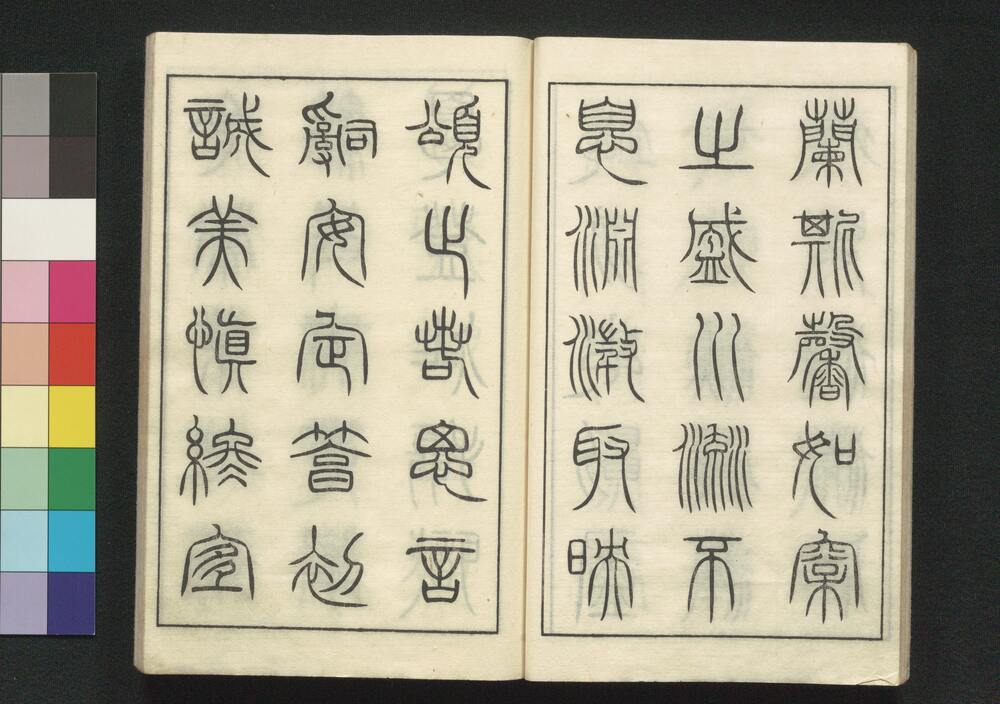 蘭斯馨如松
之盛川流不
息淵澂取映
頌止若思言
辭安定篤初
誠美慎終宜